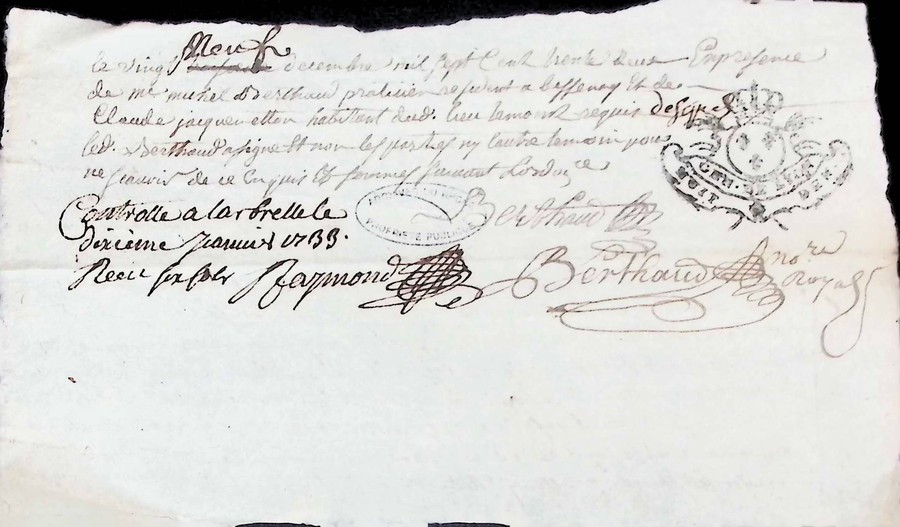 neuf
le vingt decembre mil sept Cent trente deux En presence
de me michel Berthaud praticien resident a bessenay Et de
Claude jacquemetton habitant dud. lieu temoins requis de signer
led. Berthaud a signe Et non les parties ny lautre temoin pour
ne scavoir de ce Enquis Et sommes suivant Lordce
Controlle a larbrelle le
dixieme Janvier 1733.
Receu six sols Raymond
Berthaud
Berthaud nore Royal
PROPRIETE PUBLIQUE
GEN. DE LYON
HUIT DEN.